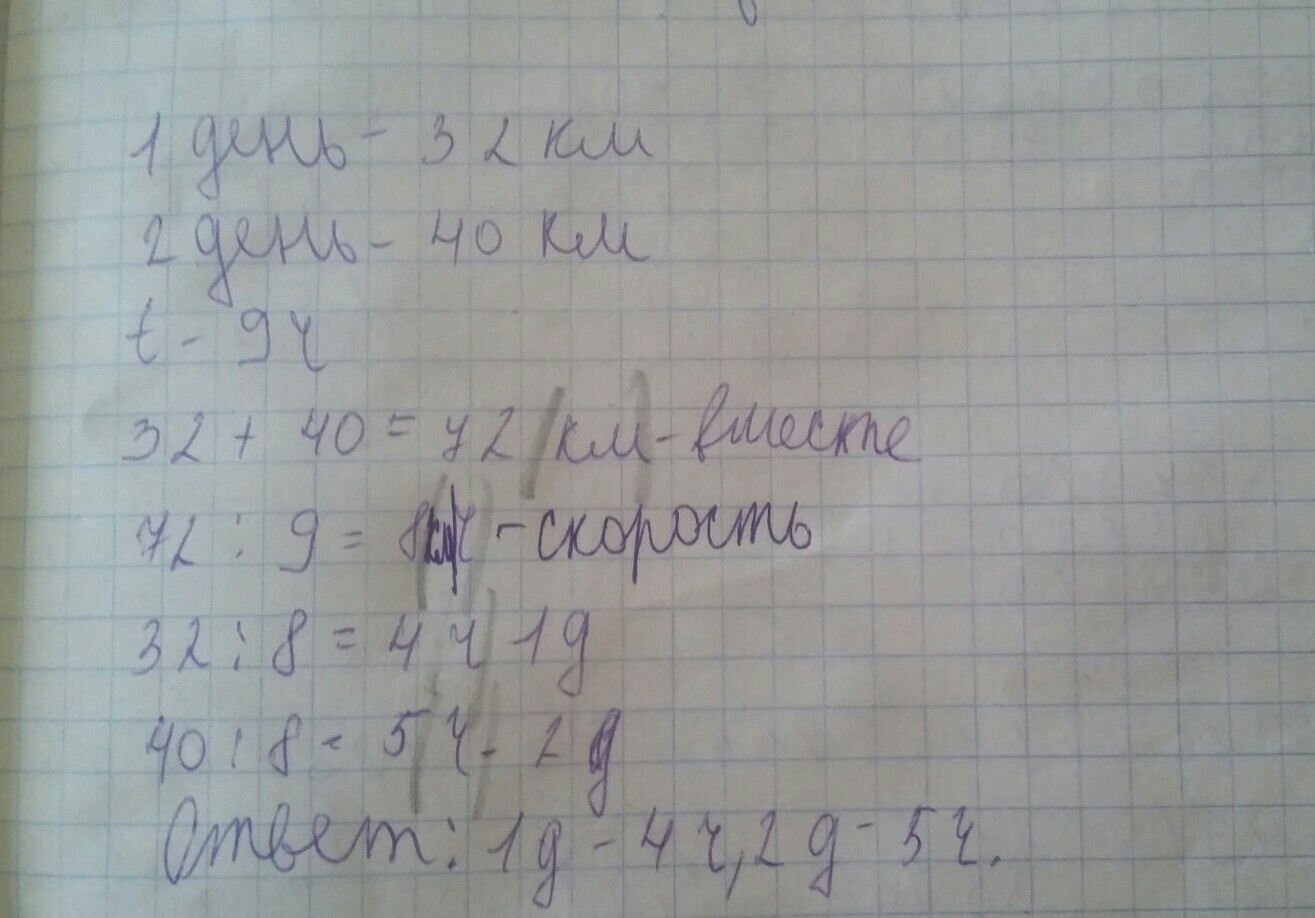 1 день - 32 км
2 день - 40 км
t - 9ч
32 + 40 = 72 (км) - вместе
72 : 9 = 8(км/ч) - скорость
32 : 8 = 4(ч) 1д
40 : 8 = 5(ч) - 2д
Ответ: 1д - 4ч, 2д - 5ч.